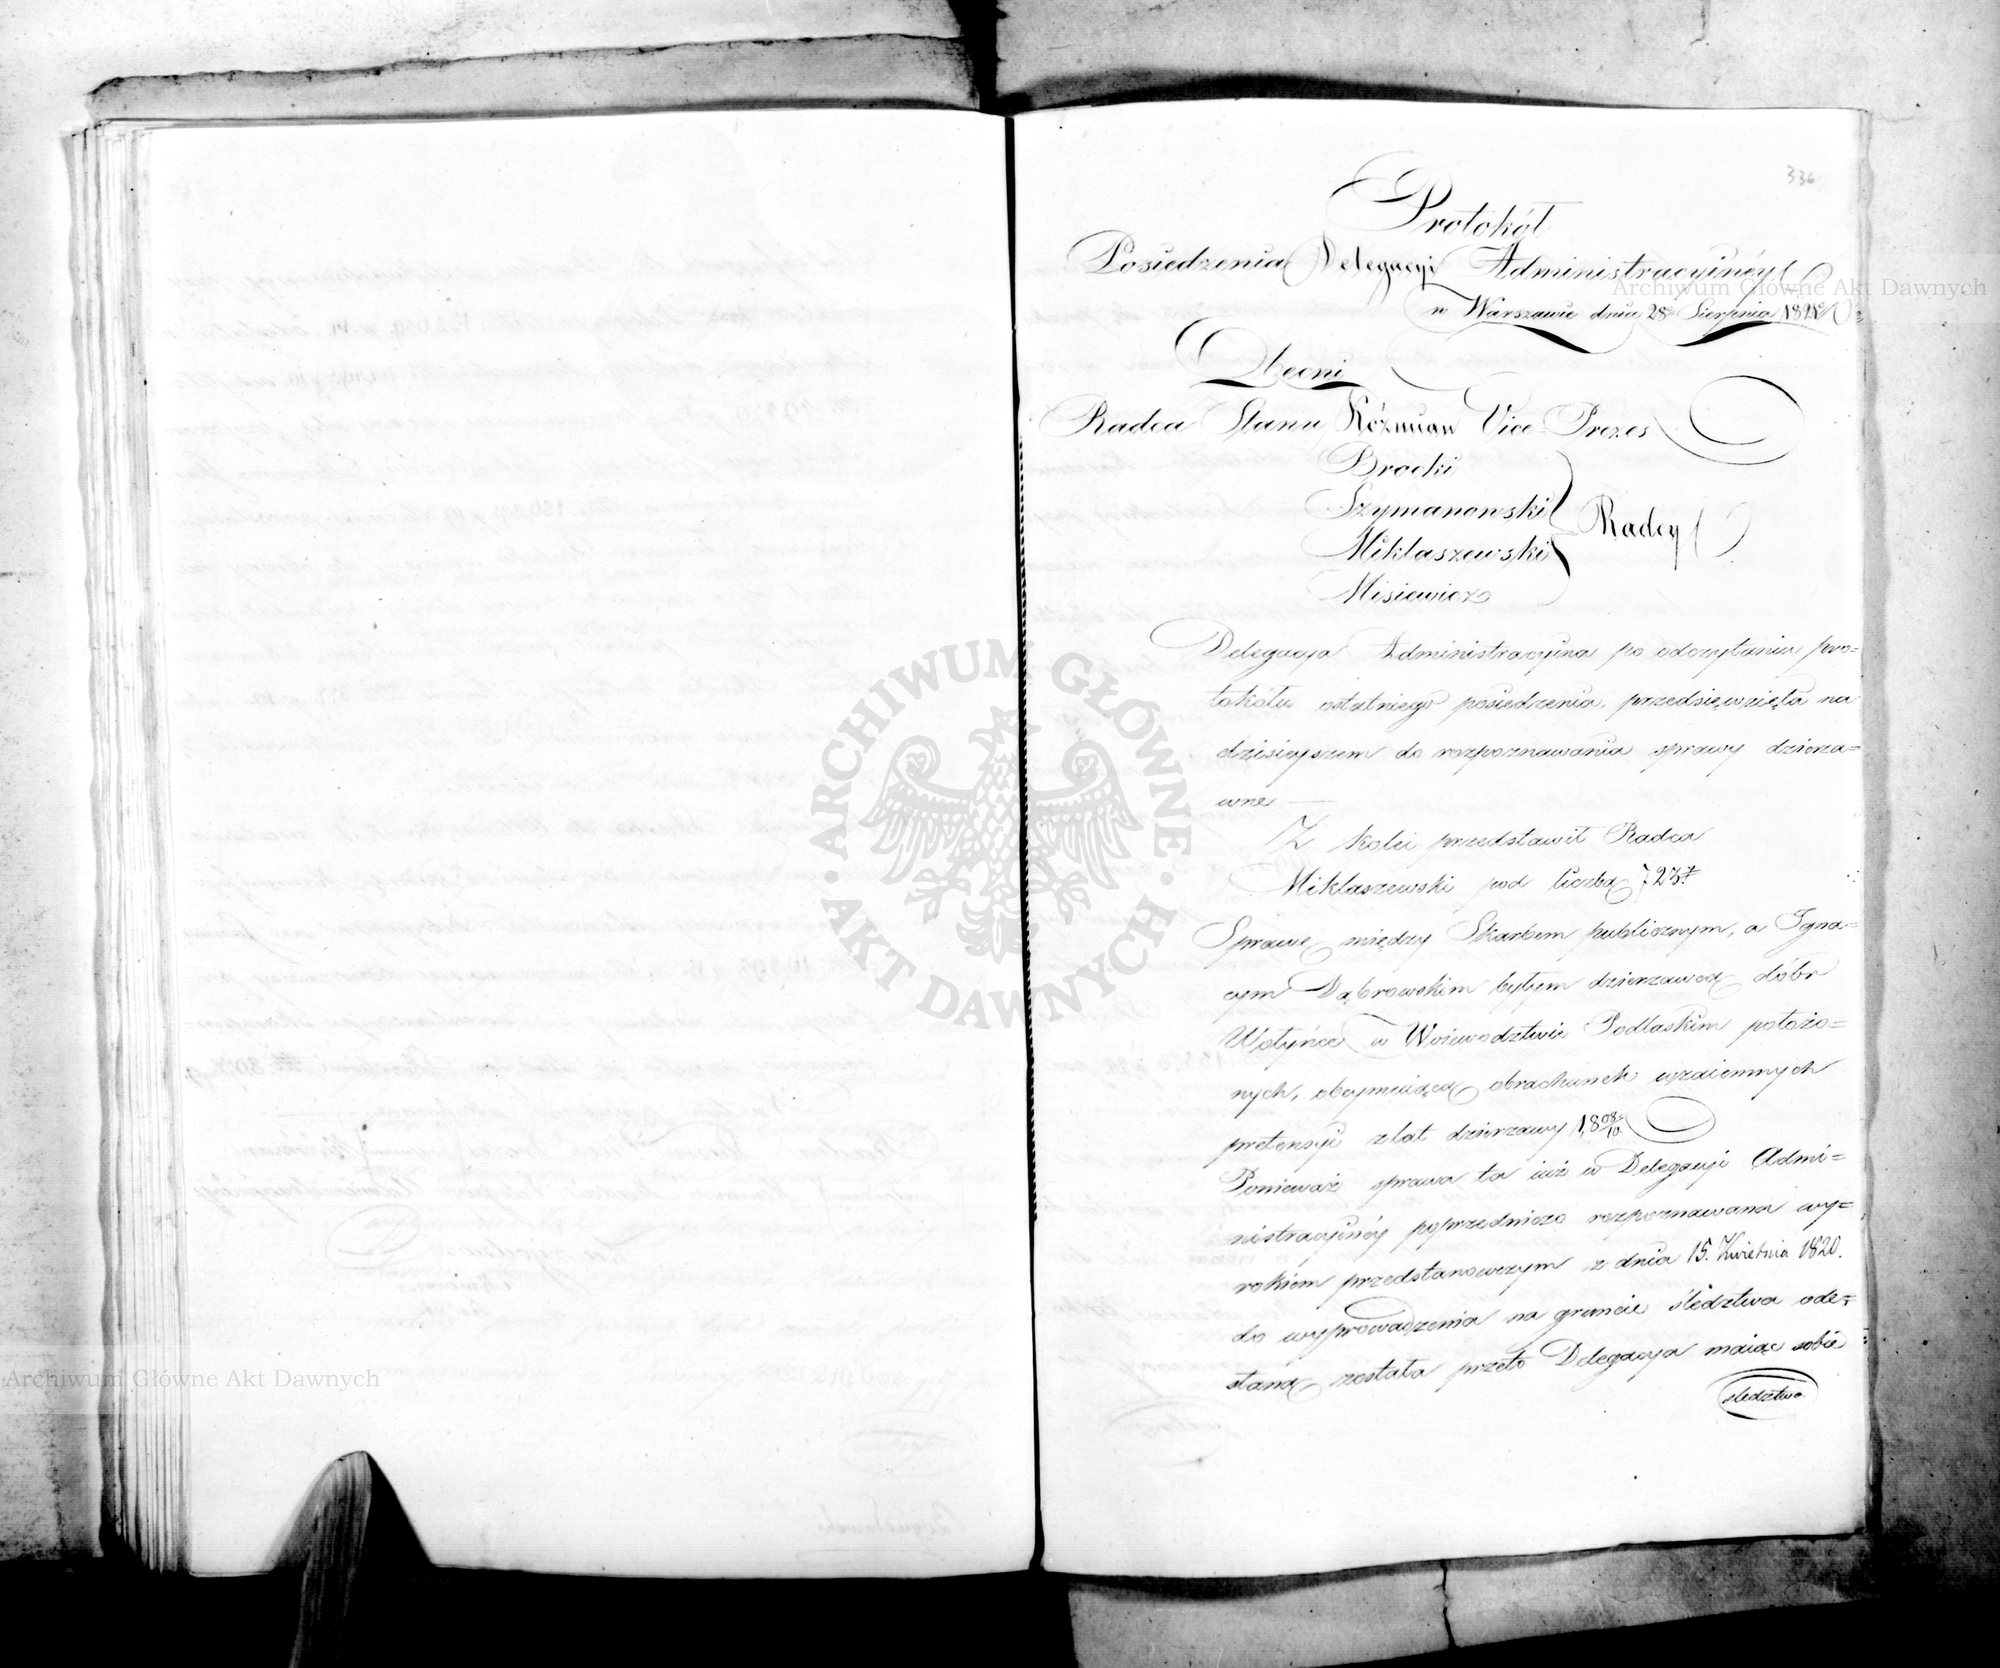 336
Protokół
Posiedzenia Delegacyi Administracyinéy
w Warszawie dnia 28 Sierpnia
Obecni
Radca Stanu Kóżmian Vice-Prezes
Brocki
Szymanowski
Miklaszewski
Radcy
Misiewicz
Delegacya Administracyina po odczytaniu pro=
tokółu ostatniego posiedzenia, przedsięwzięła na
dzisieyszem do rozpoznawania sprawy dzierza=
wne —
Z kolei przedstawił Radca
Miklaszewski pod liczbą 723
Sprawę między Skarbem publicznym, a Igna=
cym Dąbrowskim byłym dzierzawcą dóbr
Wołyńce w Woiewodztwie Podlaskim położo=
nych, obeymuiącą obrachunek wzaiemnych
pretensyi z lat dzierzawy 1808/10
Ponieważ sprawa ta iuż w Delegacyi Admi=
nistracyinéy poprzedniczo rozpoznawana wy=
rokiem przedstanowczym z dnia 15. Kwietnia 1820.
do wyprowadzenia na gruncie śledztwa ode=
słaną została przeto Delegacya maiąc sobie
śledztwo
Archiwum Główne Akt Dawnych
ARCHIWUM GŁÓWNE · AKT DAWNYCH ·
Archiwum Główne Akt Dawnych